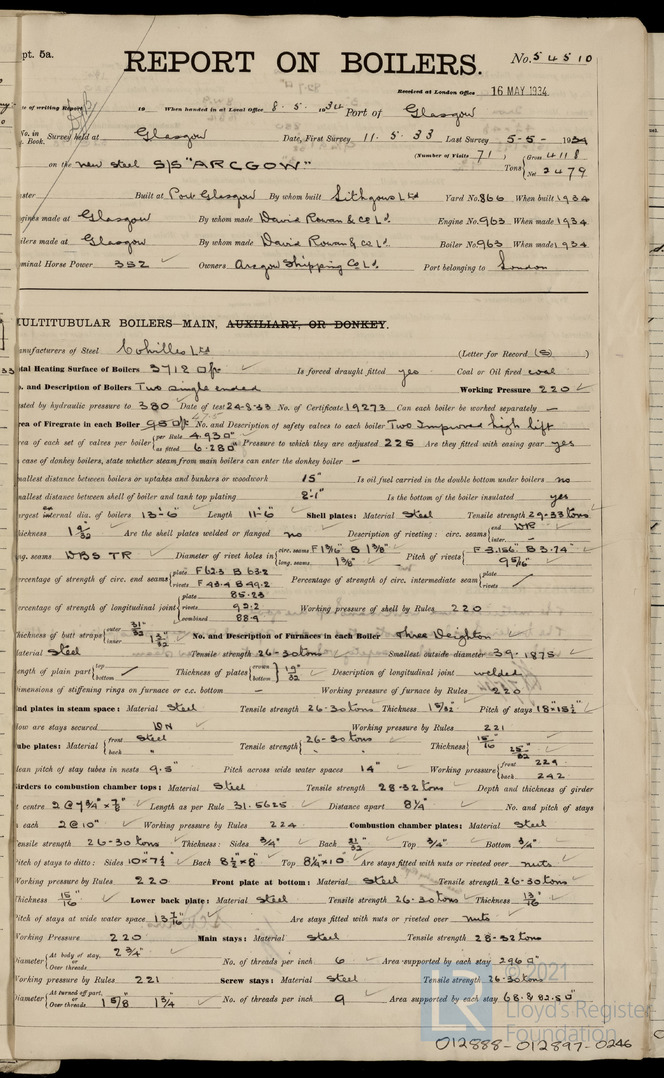 pt. 5a.
REPORT ON BOILERS.
No. 54510
Received at London Office 16 MAY 1934
te of writing Report 19 When handed in at Local Office 8.5.1934 Port of Glasgow
No. in Survey held at Glasgow Date, First Survey 11.5.33 Last Survey 5-5-1934
Book.
on the new steel S/S "ARCGOW" (Number of Visits 71) Tons {Gross 4118
Net 2479
ster Built at Port Glasgow By whom built Lithgows Ltd Yard No. 866 When built 1934
gines made at Glasgow By whom made David Rowan & Co Ld. Engine No. 963 When made 1934
ilers made at Glasgow By whom made David Rowan & Co Ld. Boiler No. 963 When made 1934
minal Horse Power 352 Owners Arcgow Shipping Co Ld. Port belonging to London
ULTITUBULAR BOILERS—MAIN, AUXILIARY, OR DONKEY.
anufacturers of Steel Colvilles Ltd (Letter for Record (S) )
tal Heating Surface of Boilers 5712 Is forced draught fitted yes Coal or Oil fired coal
o. and Description of Boilers Two single ended Working Pressure 220
sted by hydraulic pressure to 380 Date of test 24-8-33 No. of Certificate 19273 Can each boiler be worked separately —
rea of Firegrate in each Boiler No. and Description of safety valves to each boiler Two Improved high lift
rea of each set of valves per boiler {per Rule 4.930"
as fitted 6.280" Pressure to which they are adjusted 225 Are they fitted with easing gear yes
case of donkey boilers, state whether steam from main boilers can enter the donkey boiler —
mallest distance between boilers or uptakes and bunkers or woodwork 15" Is oil fuel carried in the double bottom under boilers no
mallest distance between shell of boiler and tank top plating 2'-1" Is the bottom of the boiler insulated yes
argest internal dia. of boilers 13'-6" Length 11'-6" Shell plates: Material Steel Tensile strength 29-33 tons
hickness 1 9/32 Are the shell plates welded or flanged no Description of riveting: circ. seams {end DR
inter.
ng. seams DBS TR Diameter of rivet holes in {circ. seams F 1 3/16" B 1 3/8"
long. seams 1 3/8" Pitch of rivets {F 3.156" B 3.74"
9 5/16"
ercentage of strength of circ. end seams {plate F 62.3 B 63.2
rivets F 43.4 B 49.2 Percentage of strength of circ. intermediate seam {plate
rivets
ercentage of strength of longitudinal joint {plate 85.23
rivets 92.2
combined 88.9 Working pressure of shell by Rules 220
hickness of butt straps {outer 31/32
inner 1 3/32 No. and Description of Furnaces in each Boiler Three Deighton
aterial Steel Tensile strength 26-30 tons Smallest outside diameter 39.1875
ength of plain part {top
bottom Thickness of plates {crown
bottom 19/32 Description of longitudinal joint welded
imensions of stiffening rings on furnace or c.c. bottom — Working pressure of furnace by Rules 220
nd plates in steam space: Material Steel Tensile strength 26-30 tons Thickness 1 5/32 Pitch of stays 18" × 15 1/2"
ow are stays secured DN Working pressure by Rules 221
ube plates: Material {front Steel
back " Tensile strength {26-30 tons
" " Thickness {15/16
25/32
ean pitch of stay tubes in nests 9.5" Pitch across wide water spaces 14" Working pressure {front 229
back 242
irders to combustion chamber tops: Material Steel Tensile strength 28-32 tons Depth and thickness of girder
t centre 2 @ 7 3/4" × 7/8" Length as per Rule 31.5625 Distance apart 8 1/4" No. and pitch of stays
each 2 @ 10" Working pressure by Rules 224 Combustion chamber plates: Material Steel
ensile strength 26-30 tons Thickness: Sides 3/4" Back 21/32" Top 3/4" Bottom 3/4"
itch of stays to ditto: Sides 10" × 7 1/2 Back 8 1/2" × 8" Top 8 1/4 × 10" Are stays fitted with nuts or riveted over nuts
orking pressure by Rules 220 Front plate at bottom: Material Steel Tensile strength 26-30 tons
hickness 15/16" Lower back plate: Material Steel Tensile strength 26-30 tons Thickness 13/16
itch of stays at wide water space 13 7/16" Are stays fitted with nuts or riveted over nuts
orking Pressure 220 Main stays: Material Steel Tensile strength 28-32 tons
iameter {At body of stay, 2 3/4"
or
Over threads No. of threads per inch 6 Area supported by each stay 296
orking pressure by Rules 221 Screw stays: Material Steel Tensile strength 26-30 tons
iameter {At turned off part,
or
Over threads 1 5/8 1 3/4 No. of threads per inch 9 Area supported by each stay 68. & 82.50"
© 2021
Lloyd's Register
Foundation
012888-012897-0246